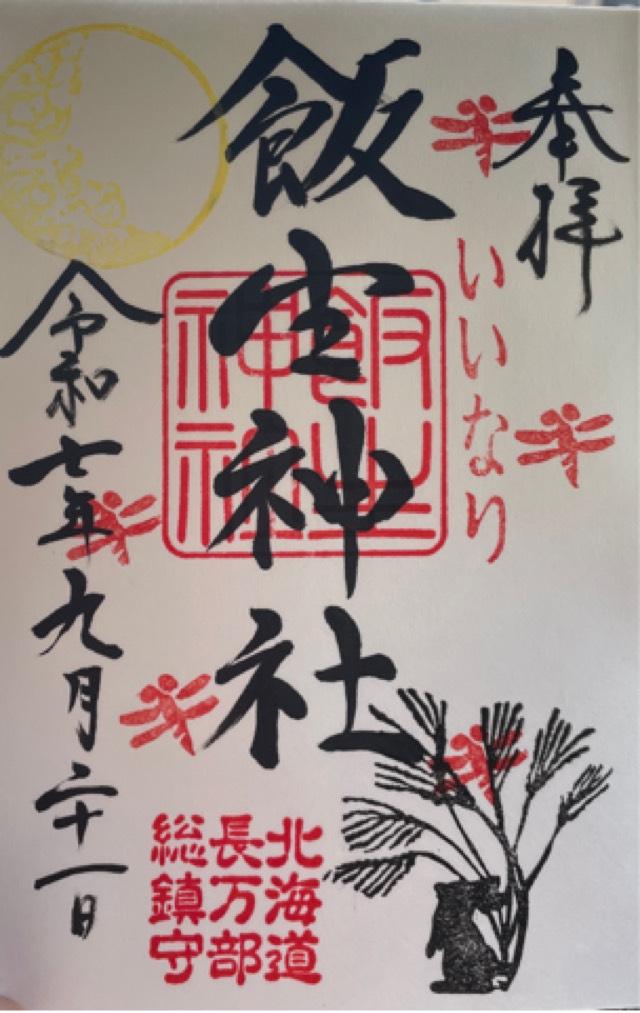 奉拝
いいなり
飯生神社
飯生
神社
北海道
長万部
総鎮守
令和七年九月二十一日